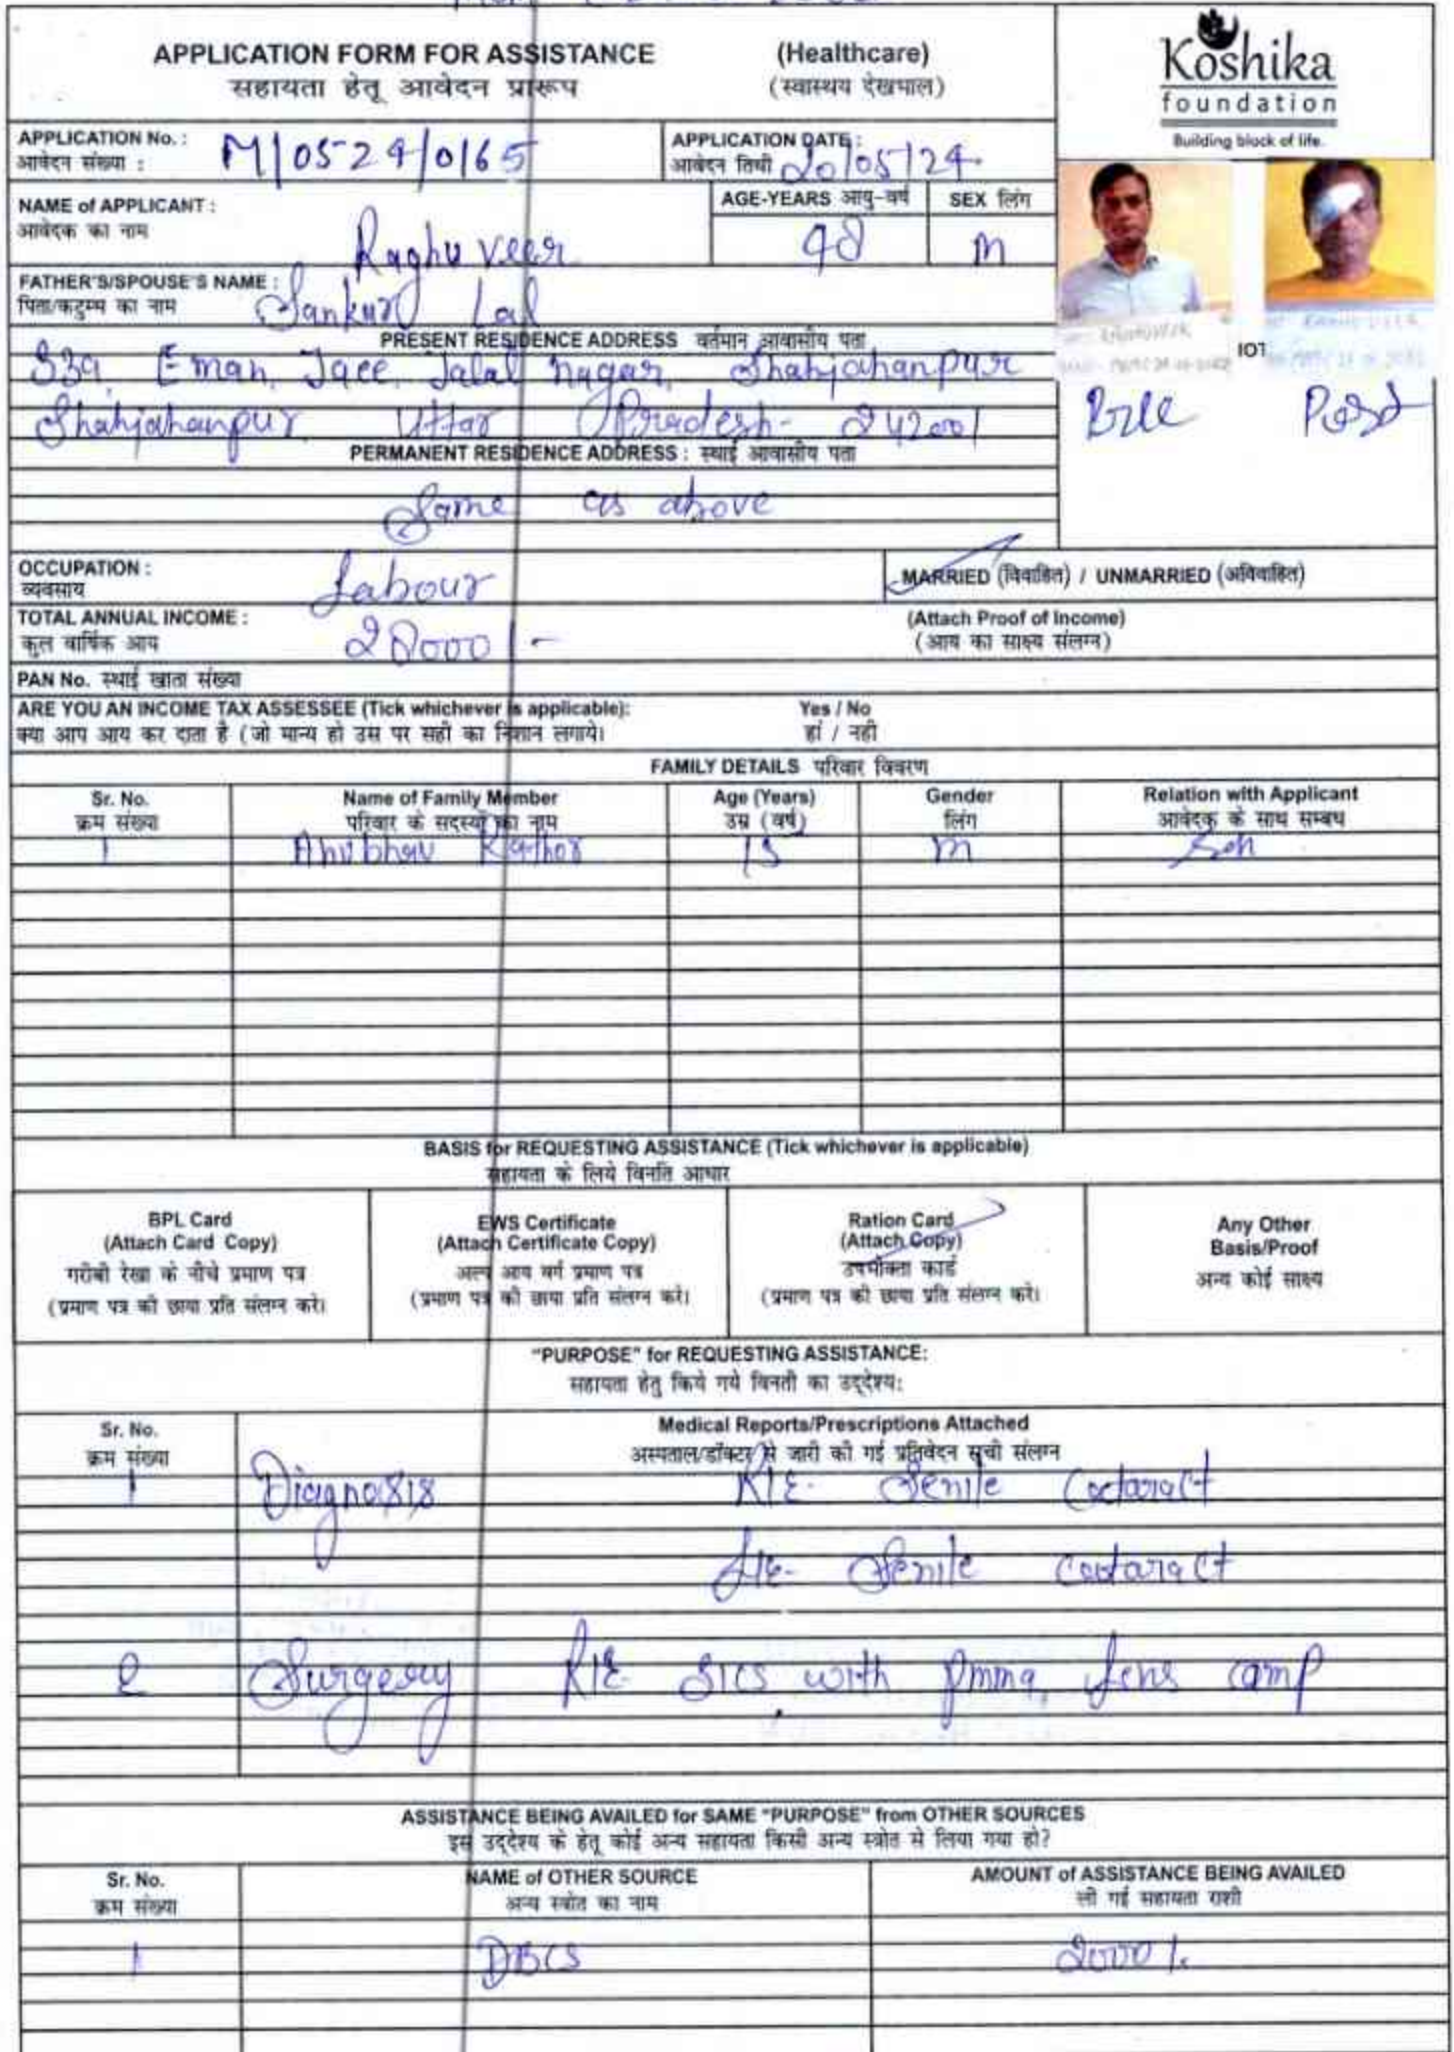 APPLICATION FORM FOR ASSISTANCE (Healthcare)
सहायता हेतू आवेदन प्रारूप (स्वास्थय देखभाल)
Koshika
foundation
Building block of life.
APPLICATION No. : M/05-24/0165
आवेदन संख्या :
APPLICATION DATE : 20/05/24
आवेदन तिथी
NAME of APPLICANT : Raghu veer
आवेदक का नाम
AGE-YEARS आयु-वर्ष 48
SEX लिंग M
FATHER'S/SPOUSE'S NAME : Sankar Lal
पिता/कटुम्ब का नाम
PRESENT RESIDENCE ADDRESS वर्तमान आवासीय पता
339, Eman, Jaee, Jalal nagar, Shahjahanpur
Shahjahanpur Uttar Pradesh- 242001
Post
PERMANENT RESIDENCE ADDRESS : स्थाई आवासीय पता
Same as above
OCCUPATION : Labour
व्यवसाय
MARRIED (विवाहित) / UNMARRIED (अविवाहित)
TOTAL ANNUAL INCOME : 28000/-
कुल वार्षिक आय
(Attach Proof of Income)
(आय का साक्ष्य संलग्न)
PAN No. स्थाई खाता संख्या
ARE YOU AN INCOME TAX ASSESSEE (Tick whichever is applicable): Yes / No
क्या आप आय कर दाता है (जो मान्य हो उस पर सही का निशान लगाये। हां / नही
FAMILY DETAILS परिवार विवरण
Sr. No. Name of Family Member Age (Years) Gender Relation with Applicant
क्रम संख्या परिवार के सदस्यों का नाम उम्र (वर्ष) लिंग आवेदक के साथ सम्बध
1 Anubhav Rathor 15 M Son
BASIS for REQUESTING ASSISTANCE (Tick whichever is applicable)
सहायता के लिये विनति आधार
BPL Card
(Attach Card Copy)
गरीबी रेखा के नीचे प्रमाण पत्र
(प्रमाण पत्र की छाया प्रति संलग्न करे।
EWS Certificate
(Attach Certificate Copy)
अल्प आय वर्ग प्रमाण पत्र
(प्रमाण पत्र की छाया प्रति संलग्न करे।
Ration Card
(Attach Copy)
उपभोक्ता कार्ड
(प्रमाण पत्र की छाया प्रति संलग्न करे।
Any Other
Basis/Proof
अन्य कोई साक्ष्य
"PURPOSE" for REQUESTING ASSISTANCE:
सहायता हेतु किये गये विनती का उद्देश्य:
Sr. No. Medical Reports/Prescriptions Attached
क्रम संख्या अस्पताल/डॉक्टर से जारी की गई प्रतिवेदन सूची संलग्न
1 Diagnosis R/E- Senile Cataract
L/E- Senile Cataract
2 Surgery R/E- SICS with pmma, lens camp
ASSISTANCE BEING AVAILED for SAME "PURPOSE" from OTHER SOURCES
इस उद्देश्य के हेतू कोई अन्य सहायता किसी अन्य स्त्रोत से लिया गया हो?
Sr. No. NAME of OTHER SOURCE AMOUNT of ASSISTANCE BEING AVAILED
क्रम संख्या अन्य स्त्रोत का नाम ली गई सहायता राशी
1 DBCS 2000/-